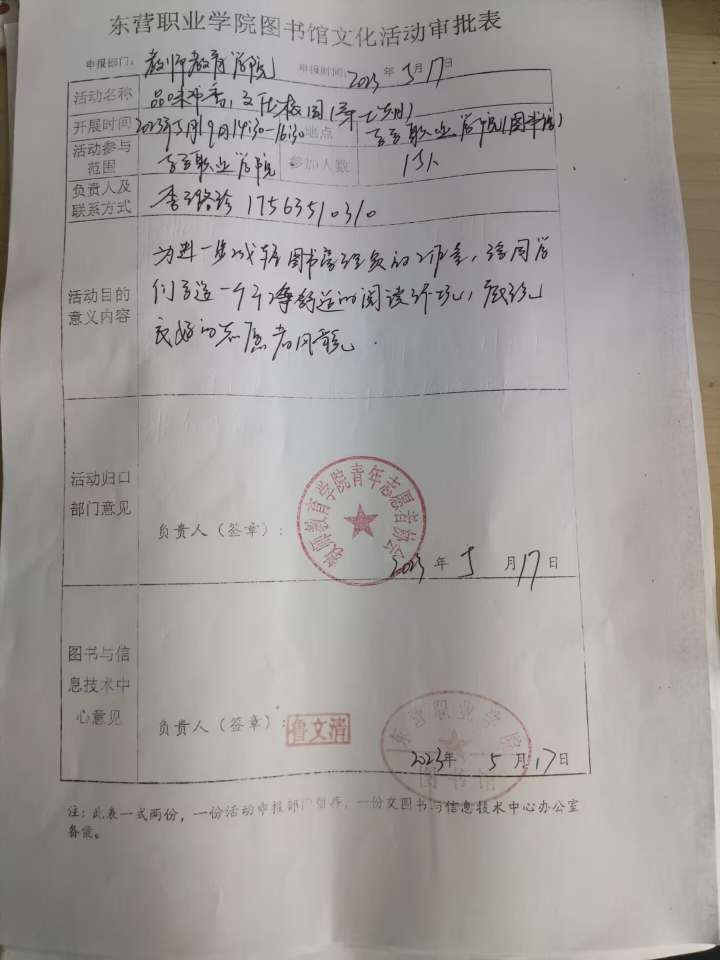 东营职业学院图书馆文化活动审批表
申报部门：教师教育学院 申报时间：2023年5月17日
活动名称 品味书香，文化校园
开展时间 2023年5月19日14:30-16:30 地点 东营职业学院（图书馆）
活动参与范围 东营职业学院 参加人数 15人
负责人及联系方式 17563510310
活动目的意义内容
为进一步 图书管理员的工作量，给同学
们营造一个干净舒适的阅读环境，展现
良好的志愿者风貌.
活动归口部门意见
教师教育学院青年志愿者协会
负责人（签章）：
2023年5月17日
图书与信息技术中心意见
东营职业学院
图书馆
负责人（签章）： 鲁文清
2023年5月17日
注：此表一式两份，一份活动申报部门留存，一份交图书与信息技术中心办公室
备案。